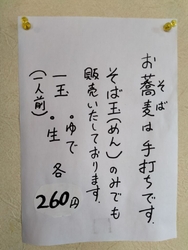 お蕎麦は手打ちです。
そば
そば玉(めん)のみでも
販売いたしております。
一玉 ・ゆで ・生 各 260円
(一人前)